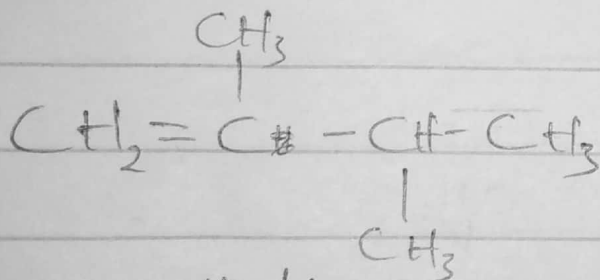 CH₃
|
CH₂ = C - CH - CH₃
|
CH₃